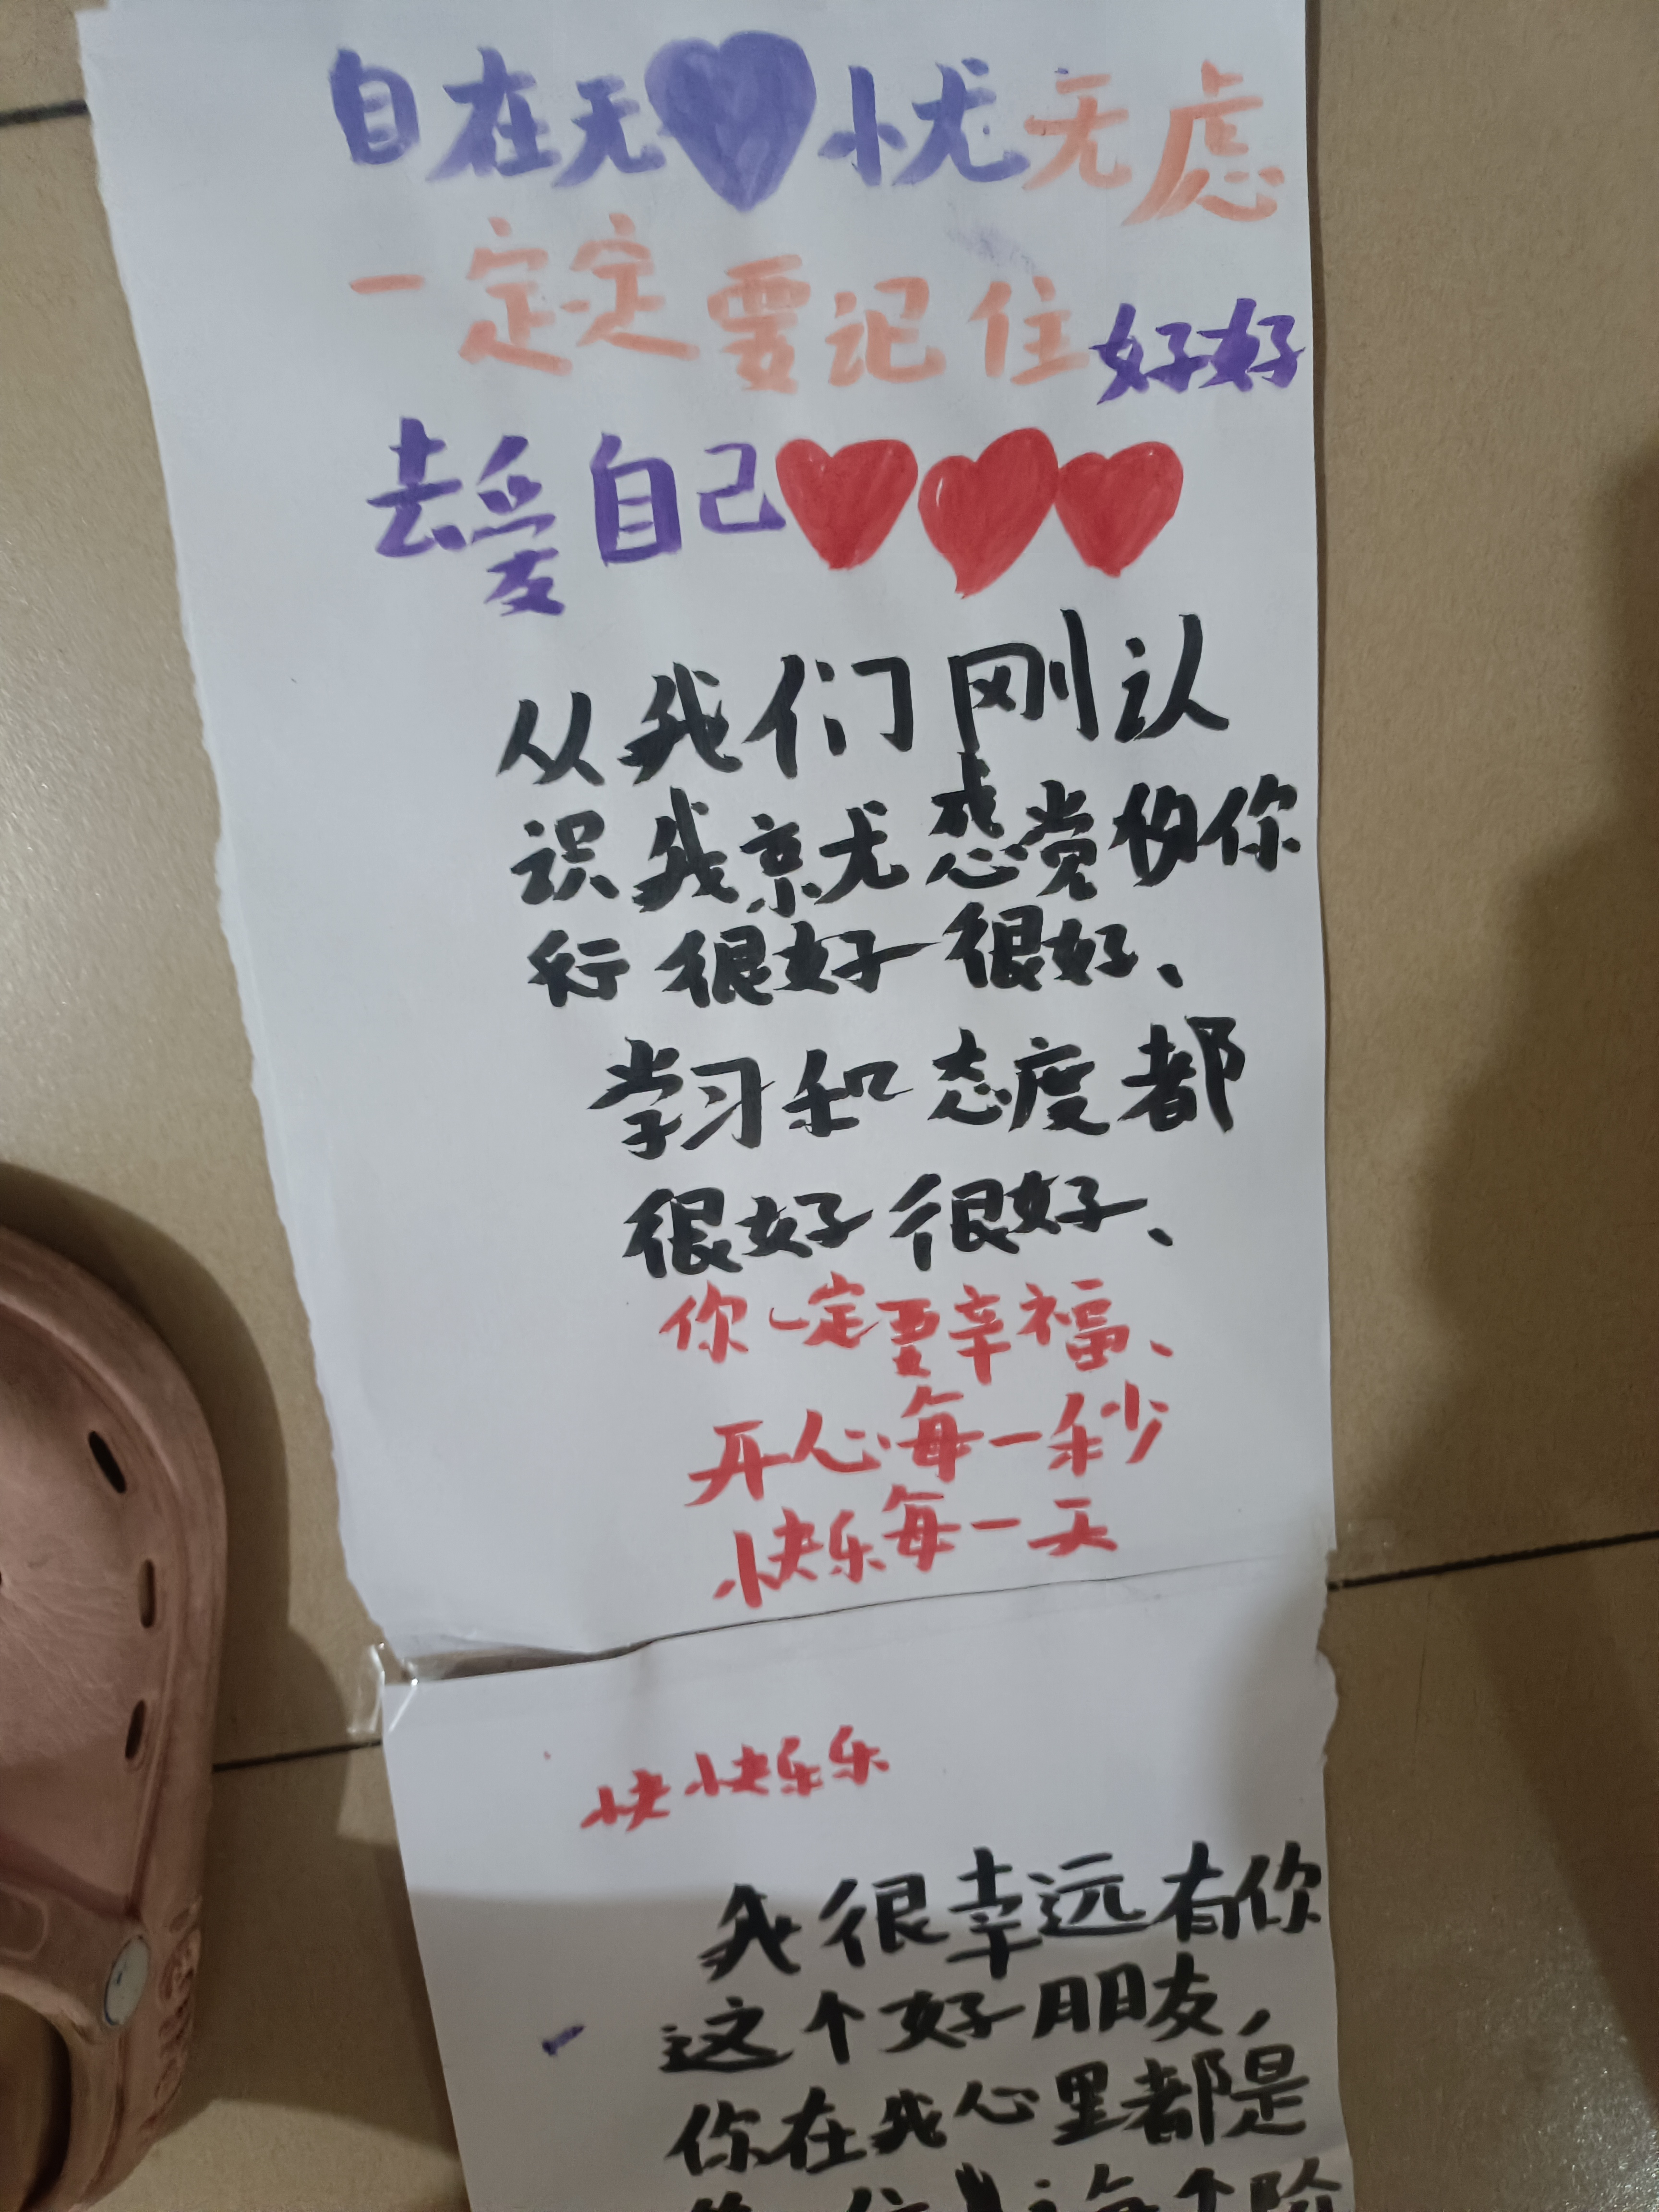 自在无忧无虑
一定定要记住好好
去爱自己
从我们刚认
识我就感觉的你
行很好很好、
学习和态度都
很好很好、
你一定要幸福、
开心每一秒
快乐每一天
快快乐乐
我很幸远有你
这个好朋友,
你在我心里都是